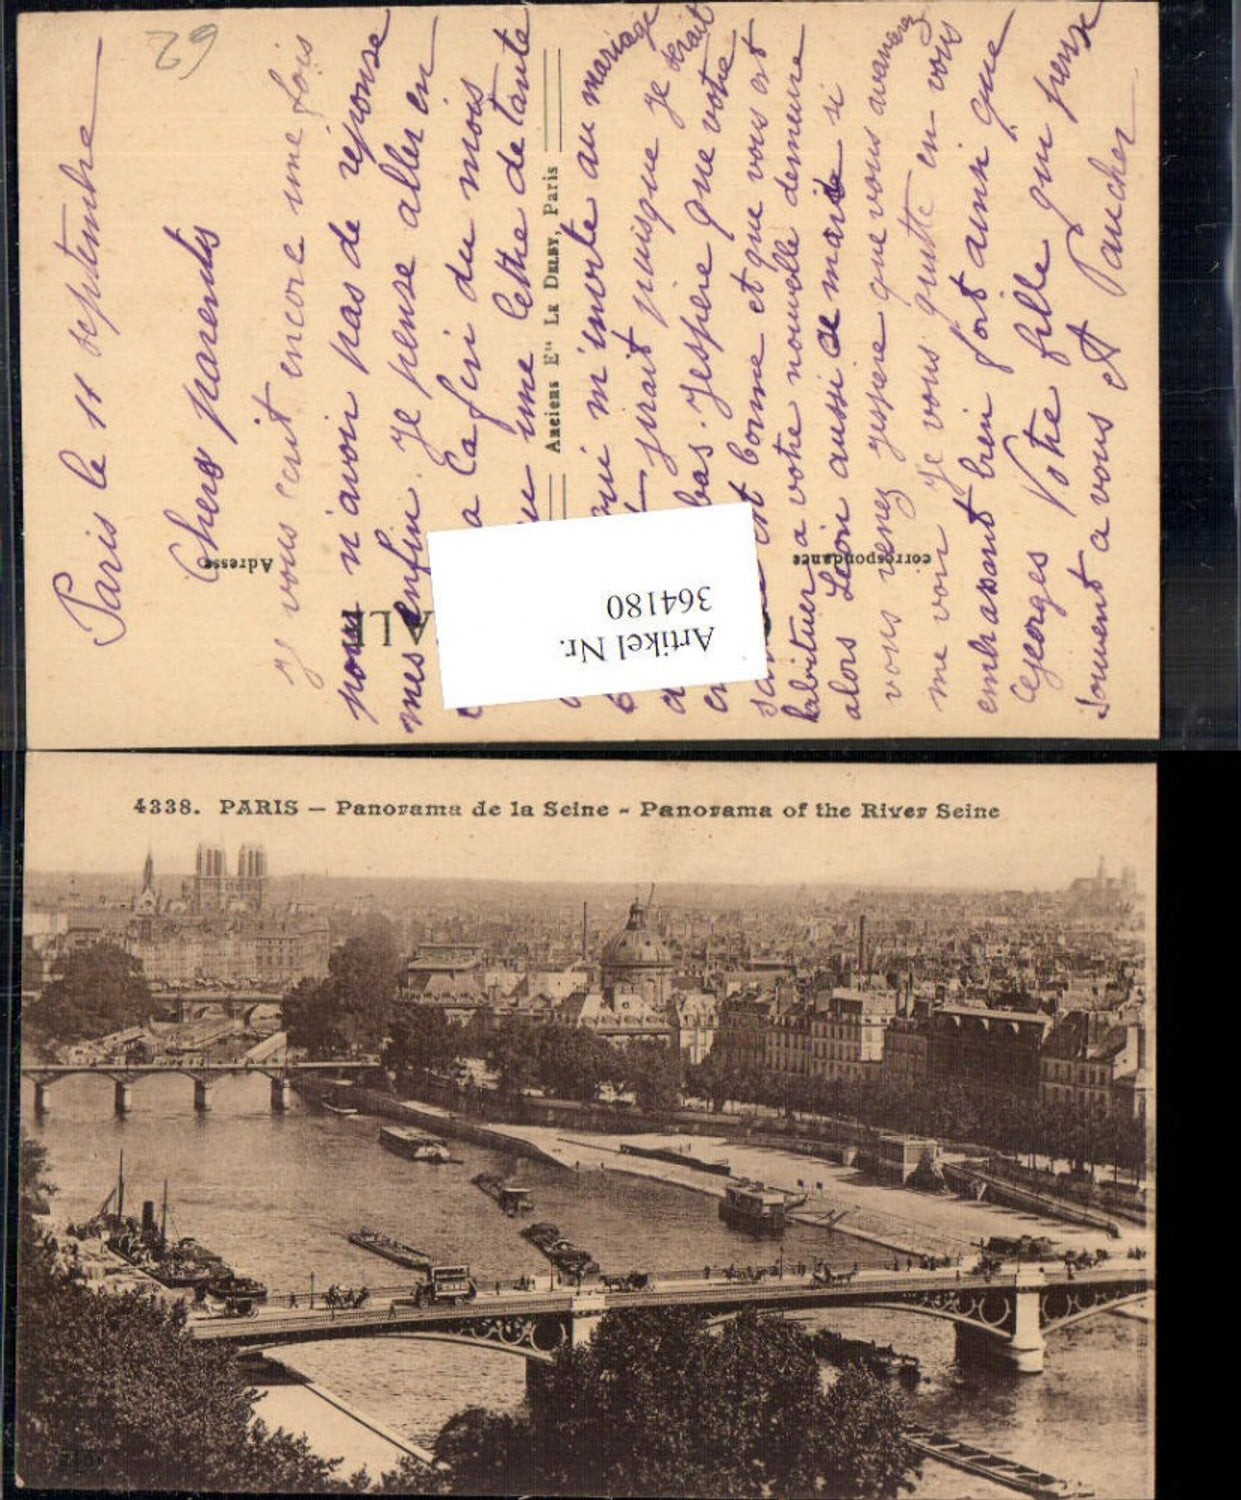 29
Paris le 11 septembre
Chers parents
Je vous ecrit encore une fois
pour n'avoir pas de reponse
mes enfin. Je pense aller en
a la fin du mois
une lettre de tante
qui m'invite au mariage
j'irait puisque je serait
bas. J'espère que votre
est bonne et que vous est
habituer a votre nouvelle demeure
alors Leon aussi de mars si
vous venez jespere que vous avancez
me voir Je vous quitte en vous
embrassant bien fort ainsi que
Georges Votre fille qui pense
souvent a vous et Paucher
Adresse
Anciens Ets Le Deley, Paris
correspondance
ALE
Artikel Nr.
364180
4338. PARIS — Panorama de la Seine - Panorama of the River Seine